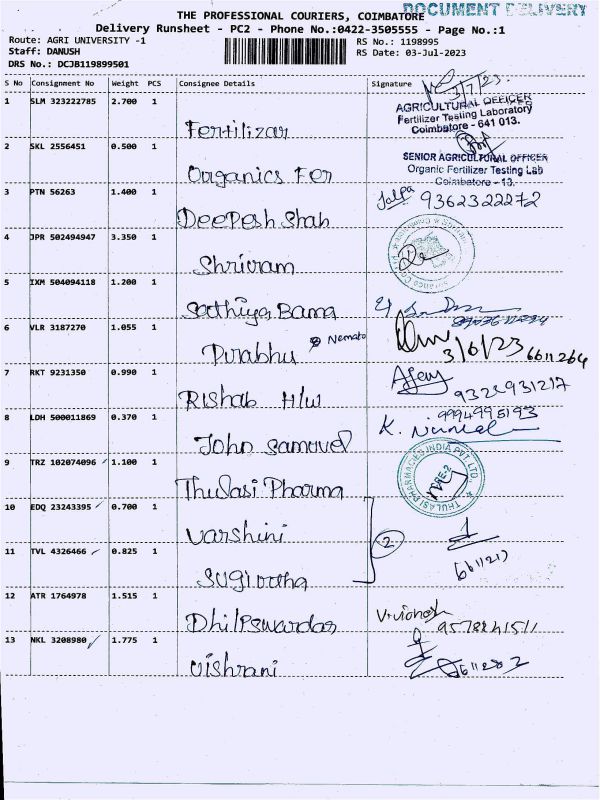 DOCUMENT DELIVERY
THE PROFESSIONAL COURIERS, COIMBATORE
Delivery Runsheet - PC2 - Phone No.:0422-3505555 - Page No.:1
Route: AGRI UNIVERSITY -1
RS No.: 1198995
Staff: DANUSH
RS Date: 03-Jul-2023
DRS No.: DCJB119899501
S No Consignment No Weight PCS Consignee Details Signature
3/7/23.
1 SLM 323222785 2.700 1 Fertilizar
AGRICULTURAL OFFICER
Fertilizer Testing Laboratory
Coimbatore - 641 013.
2 SKL 2556451 0.500 1 Organics Fer
SENIOR AGRICULTURAL OFFICER
Organic Fertilizer Testing Lab
Coimbatore - 13.
3 PTN 56263 1.400 1 Deepesh Shah Jalpa 9362322272
4 JPR 502494947 3.350 1 Shriram
5 IXM 504094118 1.200 1 Sathiya Bama
6 VLR 3187270 1.055 1 Prabhu Nemato 3/6/23 6611264
7 RKT 9231350 0.990 1 Rishab H/w
9994995193
8 LDH 500011869 0.370 1 John Samuvel K. Nirmal
9 TRZ 102074096 1.100 1 Thulasi Pharma
THULASI PHARMACIES INDIA PVT. LTD.
10 EDQ 23243395 0.700 1 Varshini
2
11 TVL 4326466 0.825 1 Sugirtha
12 ATR 1764978 1.515 1
13 NKL 3208980 1.775 1 Vishrani